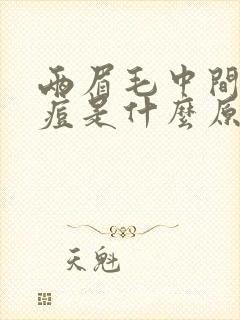 兩眉毛中間
痘是什麼原
天魁